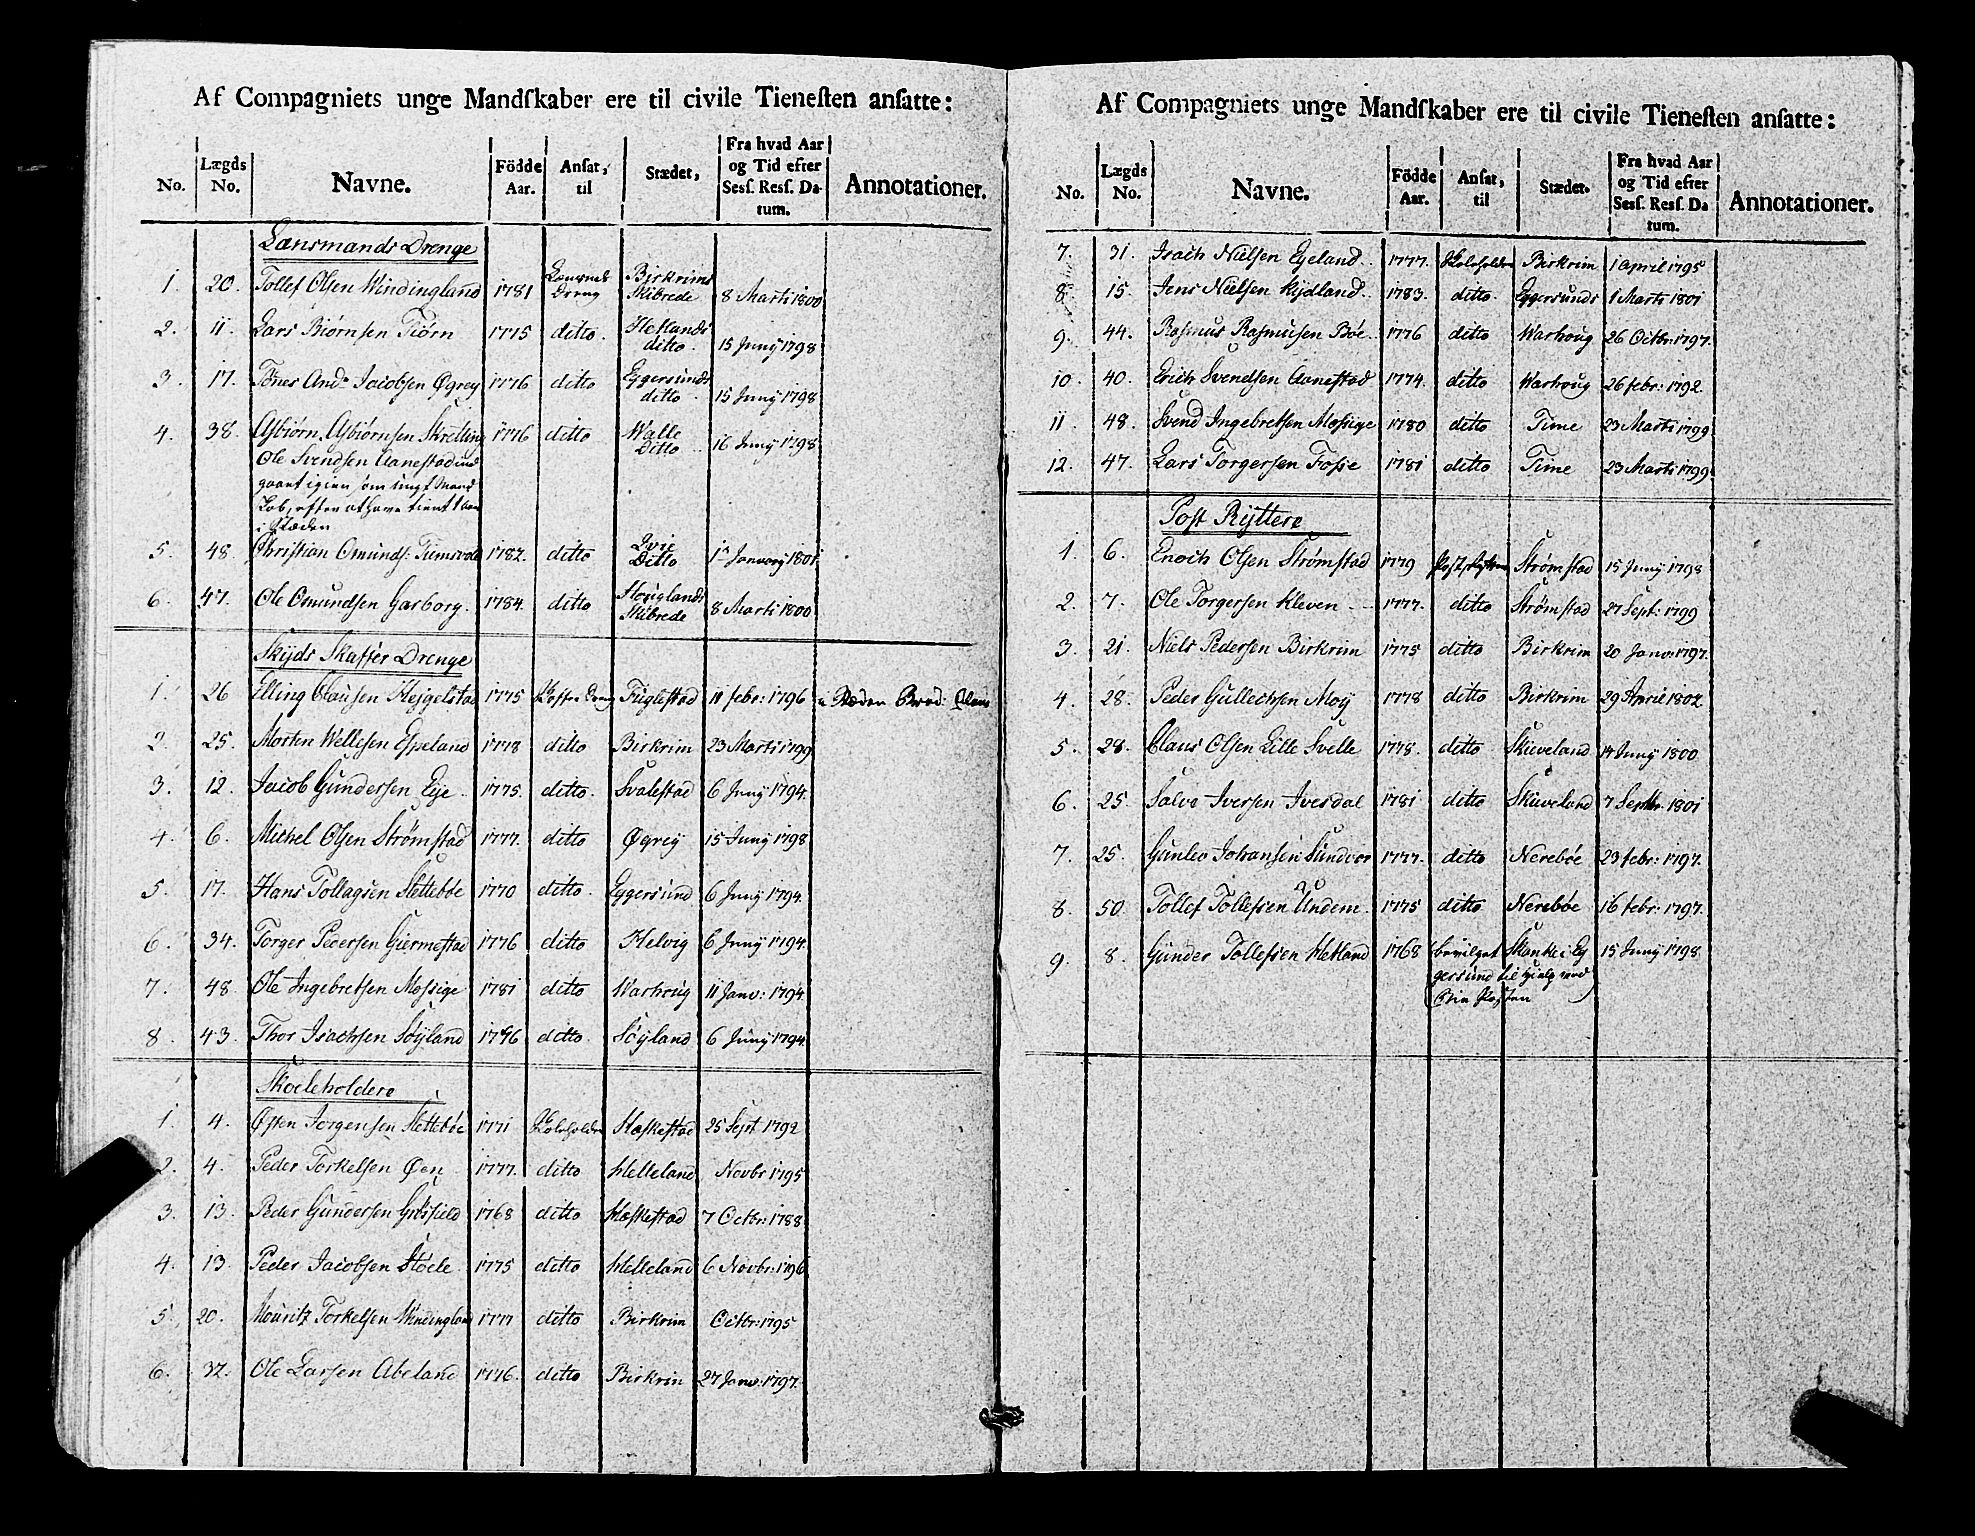 Af Compagniets unge Mandſkaber ere til civile Tieneſten anſatte:
No. Lægds No. Navne. Födde Aar. Anſat, til Stædet, Fra hvad Aar og Tid efter Seſſ. Reſſ. Datum. Annotationer.
Lænsmands Drenge
1. 20. Tollef Olsen Windingland 1781 Lænsmds Dreng Birkrims Skibrede 8 Marti 1800
2. 11. Lars Biørnsen Tiørn 1775 ditto. Hetlands ditto. 15 Junÿ 1798
3. 17. Tønes And: Jacobsen Øgreÿ 1776 ditto Eggersunds ditto. 15 Junÿ 1798
4. 38. Asbiørn Asbiørnsen Skretting 1776 ditto Walle Ditto 16 Junÿ 1798
Ole Svendsen Aanestad ind
gaaet igien som ungt Mand
Skab, efter at have tient 1 aar
i Stæden
5. 48. Christian Omunds: Tiemsvold 1782. ditto Qvie Ditto 1 Januarÿ 1801
6. 47. Ole Omundsen Garborg. 1784. ditto Höuglands Skibrede 8 Marti 1800
Skÿds Skaffer Drenge
1. 26 Elling Clausen Heÿgelstad 1775 Skaffer Dreng Füglestad 11 febr: 1796 i Stæden Brod: Claus
2. 25. Morten Wellesen Espeland 1778 ditto Birkrim 23 Marti 1799
3. 12. Jacob Gundersen Eÿe. 1775. ditto. Svalestad 6 Junÿ 1794.
4. 6. Michel Olsen Strømstad 1777. ditto Øgreÿ 15 Junÿ 1798
5. 17. Hans Tollagsen Slettebøe 1770 ditto. Eggersund 6 Junÿ 1794.
6. 34. Torger Pedersen Giermestad 1776 ditto Helvig 6 Junÿ 1794.
7. 48. Ole Ingebretsen Mossige 1781 ditto Warhoug 11 Janv: 1794.
8. 43. Thor Isachsen Söÿland 1776 ditto. Söÿland 6 Junÿ 1794.
Skoeleholdere
1. 4. Østen Jorgensen Slettebøe 1771 Skoleholder Hæskestad 25 Sept 1792
2. 4. Peder Torkelsen Øen 1777. ditto Helleland Novbr 1795
3. 13. Peder Gundersen Grøsfield 1768 ditto Hæskestad 7 Octbr: 1788
4. 13. Peder Jacobsen Støele 1775 ditto Helleland 6 Novbr: 1796
5. 20. Mouritz Torkelsen Windingland 1777 ditto Birkrim Octbr: 1795
6. 32. Ole Larsen Abeland 1776. ditto Birkrim 27 Janv: 1797.
Af Compagniets unge Mandſkaber ere til civile Tieneſten anſatte:
No. Lægds No. Navne. Födde Aar. Anſat, til Stædet. Fra hvad Aar og Tid efter Seſſ. Reſſ. Datum. Annotationer.
7. 31. Isach Nielsen Egeland 1777. Skoleholder Birkrim 1 April 1795
8. 15. Jens Nielsen Kÿdland 1783. ditto Eggersunds 1 Marti 1801
9. 44. Rasmus Rasmusen Bøe 1776 ditto Warhoug 26 Octbr: 1797.
10. 40. Erich Svendsen Aanestad 1774. ditto Warhoug 26 febr: 1792
11. 48. Svend Ingebretsen Mossige 1780 ditto Time 23 Marti 1799
12. 47. Lars Torgersen Fosse 1781 ditto Time 23 Marti 1799.
Post Rÿttere
1. 6. Enoch Olsen Strømstad 1779 Post Rÿtter Strømstad 15 Junÿ 1798
2. 7. Ole Torgersen Kleven 1777. ditto Strømstad 27 Sept: 1799
3. 21. Niels Pedersen Birkrim 1775 ditto Birkrim 20 Janv: 1797.
4. 28. Peder Gullechsen Moÿ 1778 ditto Birkrim 29 April 1802.
5. 28. Claus Olsen Lille Svelle 1778. ditto Skiæveland 14 Junÿ 1800
6. 25. Salve Iversen Ivesdal 1781 ditto Skiæveland 7 Septbr: 1801
7. 25. Gunleo Johansen Sundvor 1777. ditto Nerebøe 23 febr: 1797.
8. 50. Tollef Tollefsen Undem 1775 ditto Nerebøe 16 febr: 1797.
9. 8. Gunder Tollefsen Hetland 1768 bevilget Skanke i Eg 15 Junÿ 1798
gersund til Hielp ved
Bie Posten